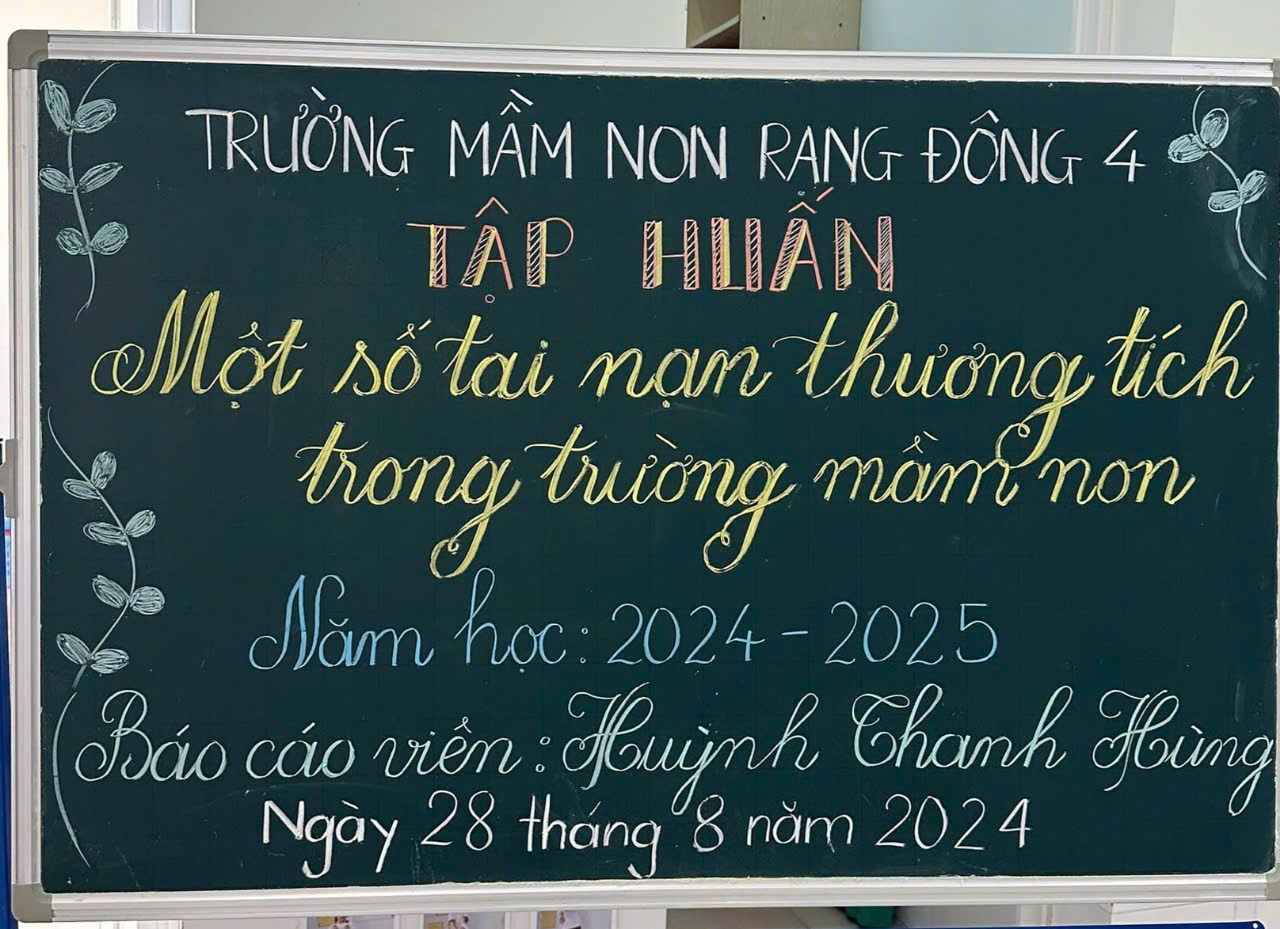 TRƯỜNG MẦM NON RẠNG ĐÔNG 4
TẬP HUẤN
Một số tai nạn thương tích
trong trường mầm non
Năm học: 2024 - 2025
Báo cáo viên: Huỳnh Thanh Hùng
Ngày 28 tháng 8 năm 2024